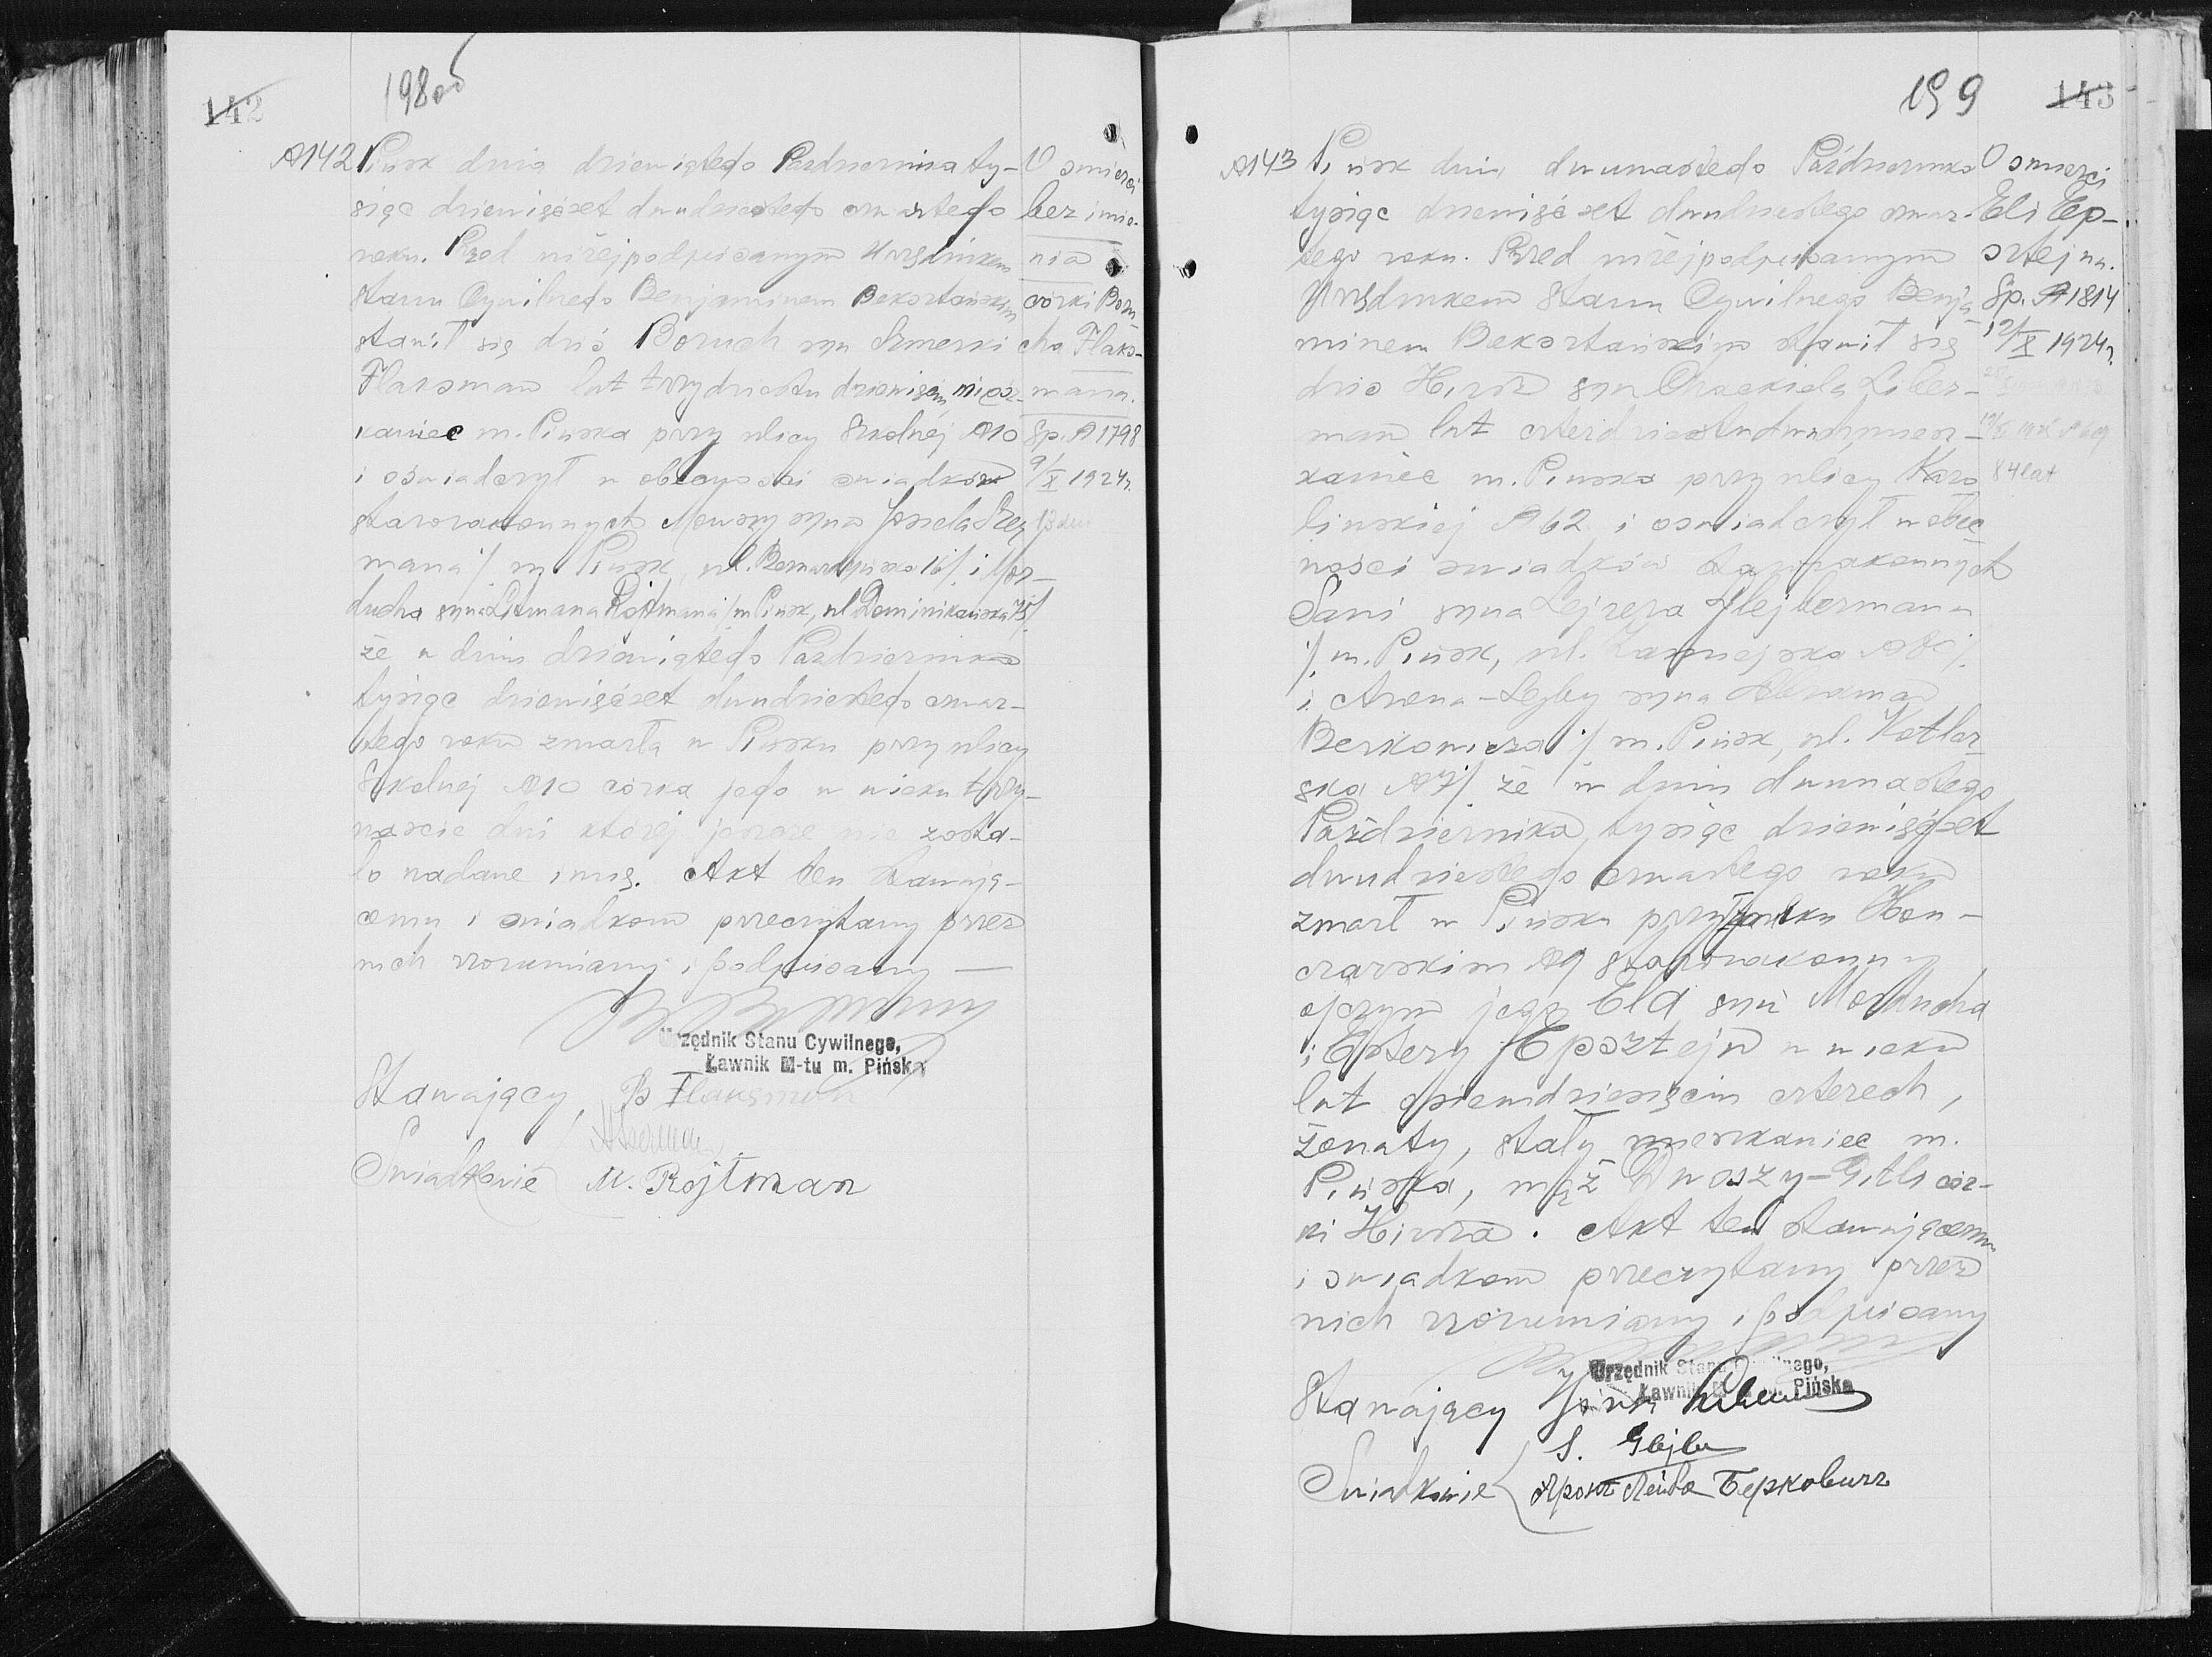 142
198 об
№142 Pińsk dnia dziewiątego Października ty-
siąc dziewięćset dwudziestego czwartego
roku. Przed niżej podpisanym Urzędnikem
Stanu Cywilnego Benjaminem Beksztańskim
stawił się dziś Boruch syn Szmerki
Flaksman lat trzydziestu dziewięciu miesz-
kaniec m. Pińska przy ulicy Szkolnej №10
i oświadczył w obecności świadków
starozakonnych Mowszy syna Josiela
mana /m. Pińsk, ul. Bernardyńska 16/ i Mor-
ducha syna Litmana Rojtmana /m Pińsk, ul Dominikańska 75/
że w dniu dziewiątego Października
tysiąc dziewięćset dwudziestego czwar-
tego roku zmarła w Pińsku przy ulicy
Szkolnej №10 córka jego w wieku trzy-
naście dni której jeszcze nie zosta-
ło nadane imię. Akt ten stawają-
cemu i świadkom przeczytany przez
nich zrozumiany i podpisany —
O śmierci
bez imie-
nia
córki Boru-
cha Flaks-
mana.
Sp. №1798
9/X 1924r.
13 dni
Urzędnik Stanu Cywilnego,
Ławnik M-tu m. Pińska
Stawający B Flaksman
Świadkowie M. Rojtman
199
143
№143 Pińsk dnia dwunastego Października
tysiąc dziewięćset dwudziestego czwar-
tego roku. Przed niżej podpisanym
Urzędnikem Stanu Cywilnego Benja-
minem Beksztańskim stawił się
dziś Hirsz syn Chackiela Liber-
man lat czterdziestu dwuch miesz-
kaniec m. Pińska przy ulicy Karo
lińskiej №62 i oświadczył w obec
ności świadków starozakonnych
Sani syna Lejzera Glejbermana
/m. Pińsk, ul.
i Arona-Lejby syna
Berkowicza /m. Pińsk, ul. Kotlar-
ska №7/ że w dniu dwunastego
Października tysiąc dziewięćset
dwudziestego czwartego roku
zmarł w Pińsku przy zaułku Hon-
czarskim №9 starozakonny
ojczym jego Ela syn Morducha
i Estery Epsztejn w wieku
lat osiemdziesięciu czterech,
żonaty, stały mieszkaniec m.
Pińska, mąż Dwoszy-Gitli cór-
ki Hirsza. Akt ten stawającemu
i świadkom przeczytany przez
nich zrozumiany i podpisany
O śmierci
Eli Ep-
sztejna.
Sp. №1814
12/X 1924r.
84 lat
Urzędnik Stanu Cywilnego,
Ławnik Pińska
Stawający
S. Glejber
Świadkowie Аронъ Лейба Берковичъ